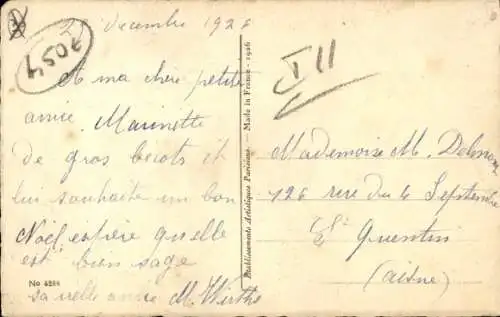 2 decembre 1926
7054
A ma chère petite
amie Marinette
de gros becots et
lui souhaite un bon
Noël, espère qu'elle
est bien sage
sa vielle amie M. Wirthe
No 4286
Etablissements Artistiques Parisiens — Made in France - 1926
II
Mademoise M.
126 rue du 4 Septembre
St Quentin
(aisne)